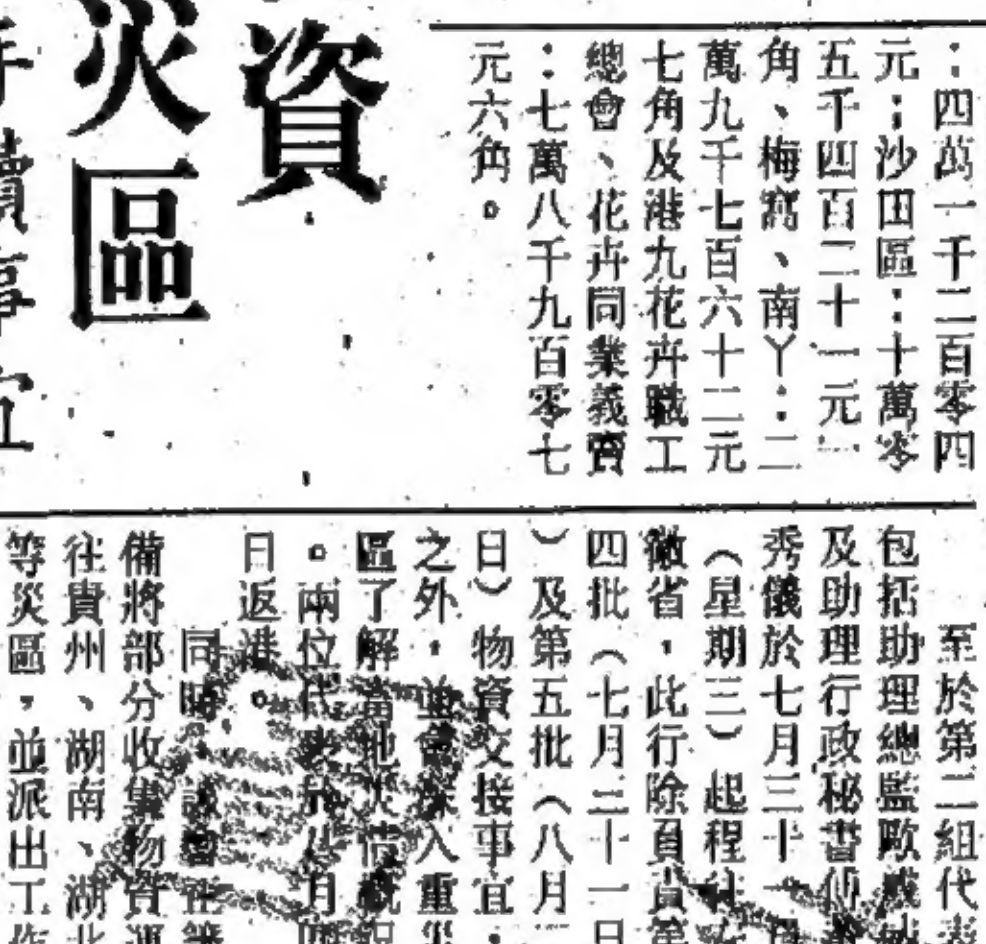 ：四萬一千二百零四
元；沙田區：十萬零
五千四百二十一元一
角、梅窩、南丫：二
萬九千七百六十二元
七角及港九花卉職工
總會、花卉同業義賣
：七萬八千九百零七
元六角。
資
災區
至於第二組代
包括助理總監歐
及助理行政秘書
秀儀於七月三十一
（星期三）起程
徽省，此行除負責
四批（七月三十一日
）及第五批（八月
日）物資交接事宜
之外，並會深入重災
區了解當地災情
。兩位代表於八月
日返港。
同時，該會
備將部分收集物資運
往貴州、湖南、湖北
等災區，並派出工作